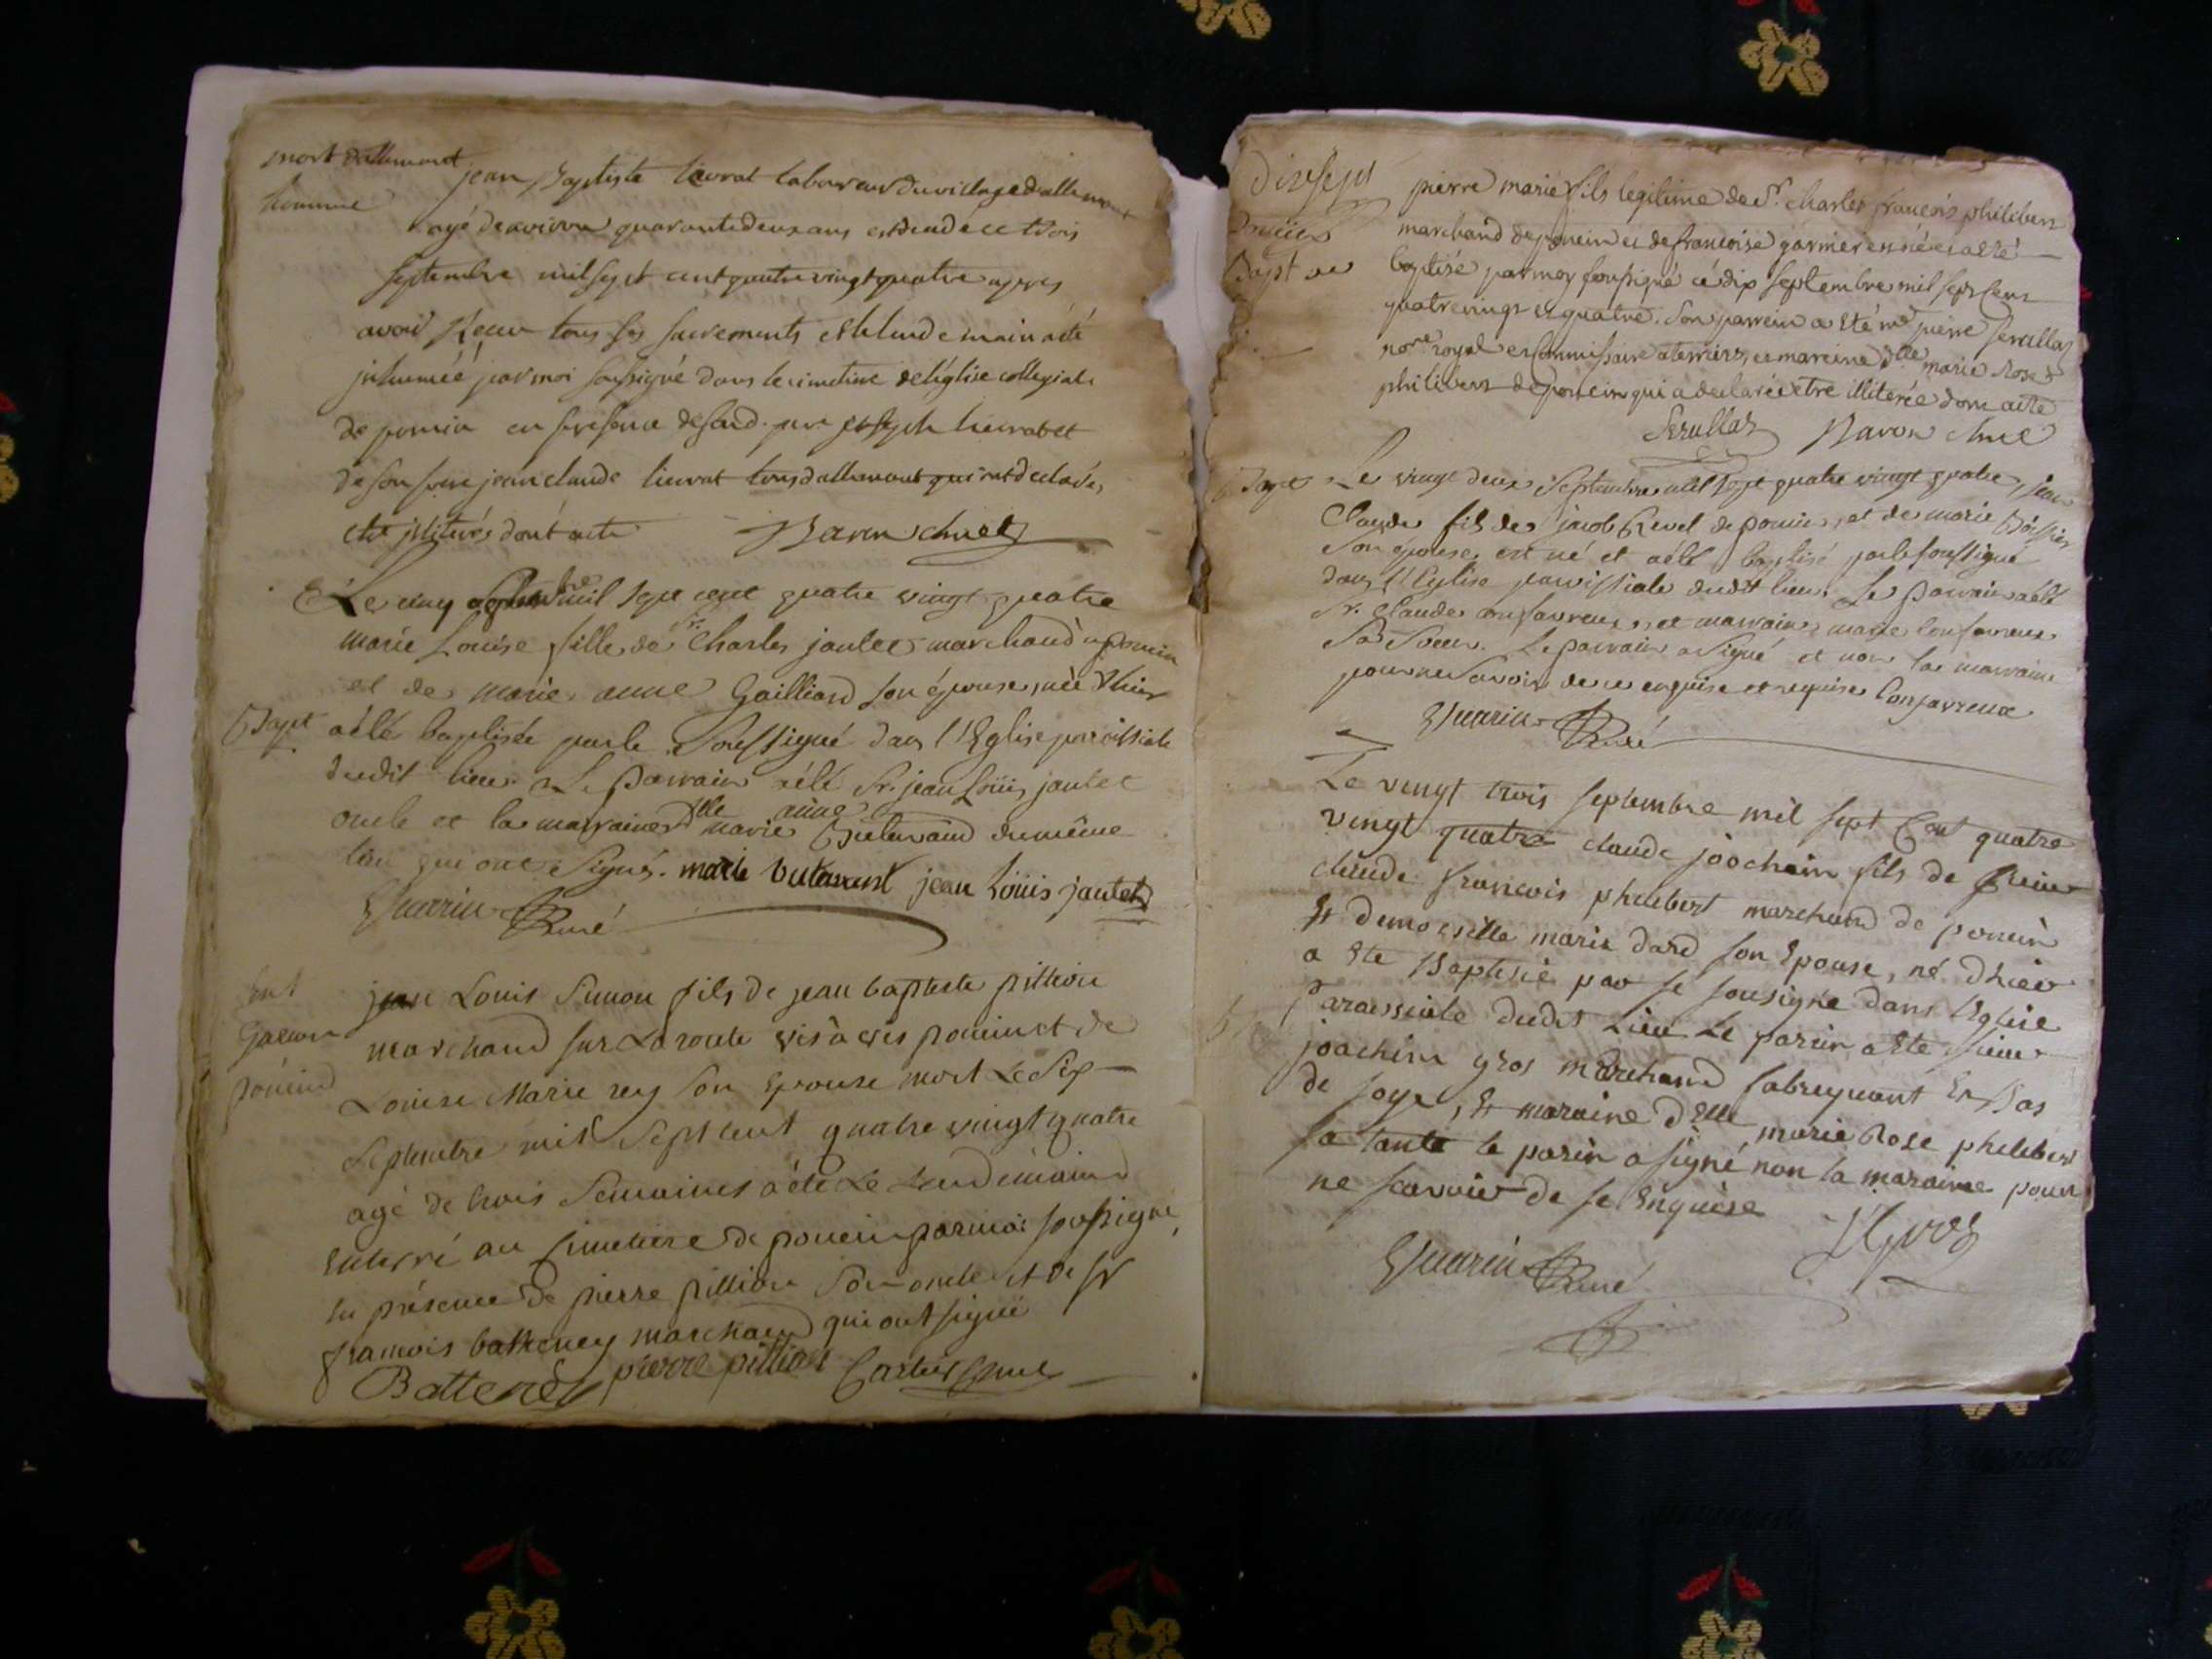 mort dallemont
homme
jean Baptiste lievrat laboureur du village dallemont
agé denviron quarante deux ans est decedé ce trois
septembre mil sept cent quatre vingt quatre apres
avoir Recu tous ses sacrements et le lendemain a été
inhuméé par moi soussigné dans le cimetiere de léglise collegiale
de poncin en presence de son pere joseph lievrat et
de son frere jean claude lievrat tous dallemont qui ont declarés
etre illiterés dont acte Baron
Le cinq mil sept cent quatre vingt quatre
marie Louise fille de Sr. Charles jantet marchand a poncin
et de marie anne Gailliard son épouse, née d'hier
Bapt
a été baptisée par le soussigné dans l'Eglise paroissiale
dudit lieu. Le Parrain a été Sr. jean Louis jantet
oncle et la marraine dlle marie anne du même
lieu qui ont signés. marie jean Loüis jantet
Guarin Curé
Ent
Garcon
poncin
jean Louis Simon fils de jean baptiste pillion
marchand sur La route vis à vis poncin et de
Louise Marie rey son Epouse mort Le Six
Septembre mil Sept cent quatre vingt quatre
agé de trois Semaines a été Le Lendemaind
Enterré au Cimetiere de poncin par moi soussigné,
En présence de pierre pillion Son oncle et de Sr
francois batteney marchand qui ont signé
Batteney pierre pillion
Dix sept
Bapt
pierre marie fils legitime de Sr. charles francois philibert
marchand de poncin et de francoise garnier est né et a eté
baptisé par moy soussigné ce dix septembre mil sept cent
quatre vingt et quatre. Son parrein a été me pierre Serullaz
nore royal et Commissaire a terriers, et mareine dlle marie Rose
philibert de poncin qui a declarée etre illiterée dont acte
Serullaz Baron
Bapt
Le vingt deux Septembre mil sept quatre vingt quatre, jean
Claude fils de jacob Revel de poncin, et de marie
son épouse, est né et a été baptisé par le soussigné
dans l'Eglise paroissiale dudit lieu. Le Parrain a été
Sr. Claude Confavreux, et marraine marie Confavreux
Sa Soeur. Le parrain a Signé et non la marraine
pour ne Savoir de ce enquise et requise Confavreux
Guarin Curé
Le vingt trois septembre mil sept Cent quatre
vingt quatre claude joochein fils de sieur
claude francois philibert marchand de poncin
Et demoiselle marie dard son Epouse, né d'hier
a Ete Baptisé par le sousigné dans l'Eglise
Paraissiale dudit Lieu Le parin a Ete sieur
joachim gros marchand fabriquant En Bas
de soye, Et maraine dElle marie Rose philibert
sa tante le parin a signé non la maraine pour
ne scavoir de se Enquise
Guarin Curé
JGros